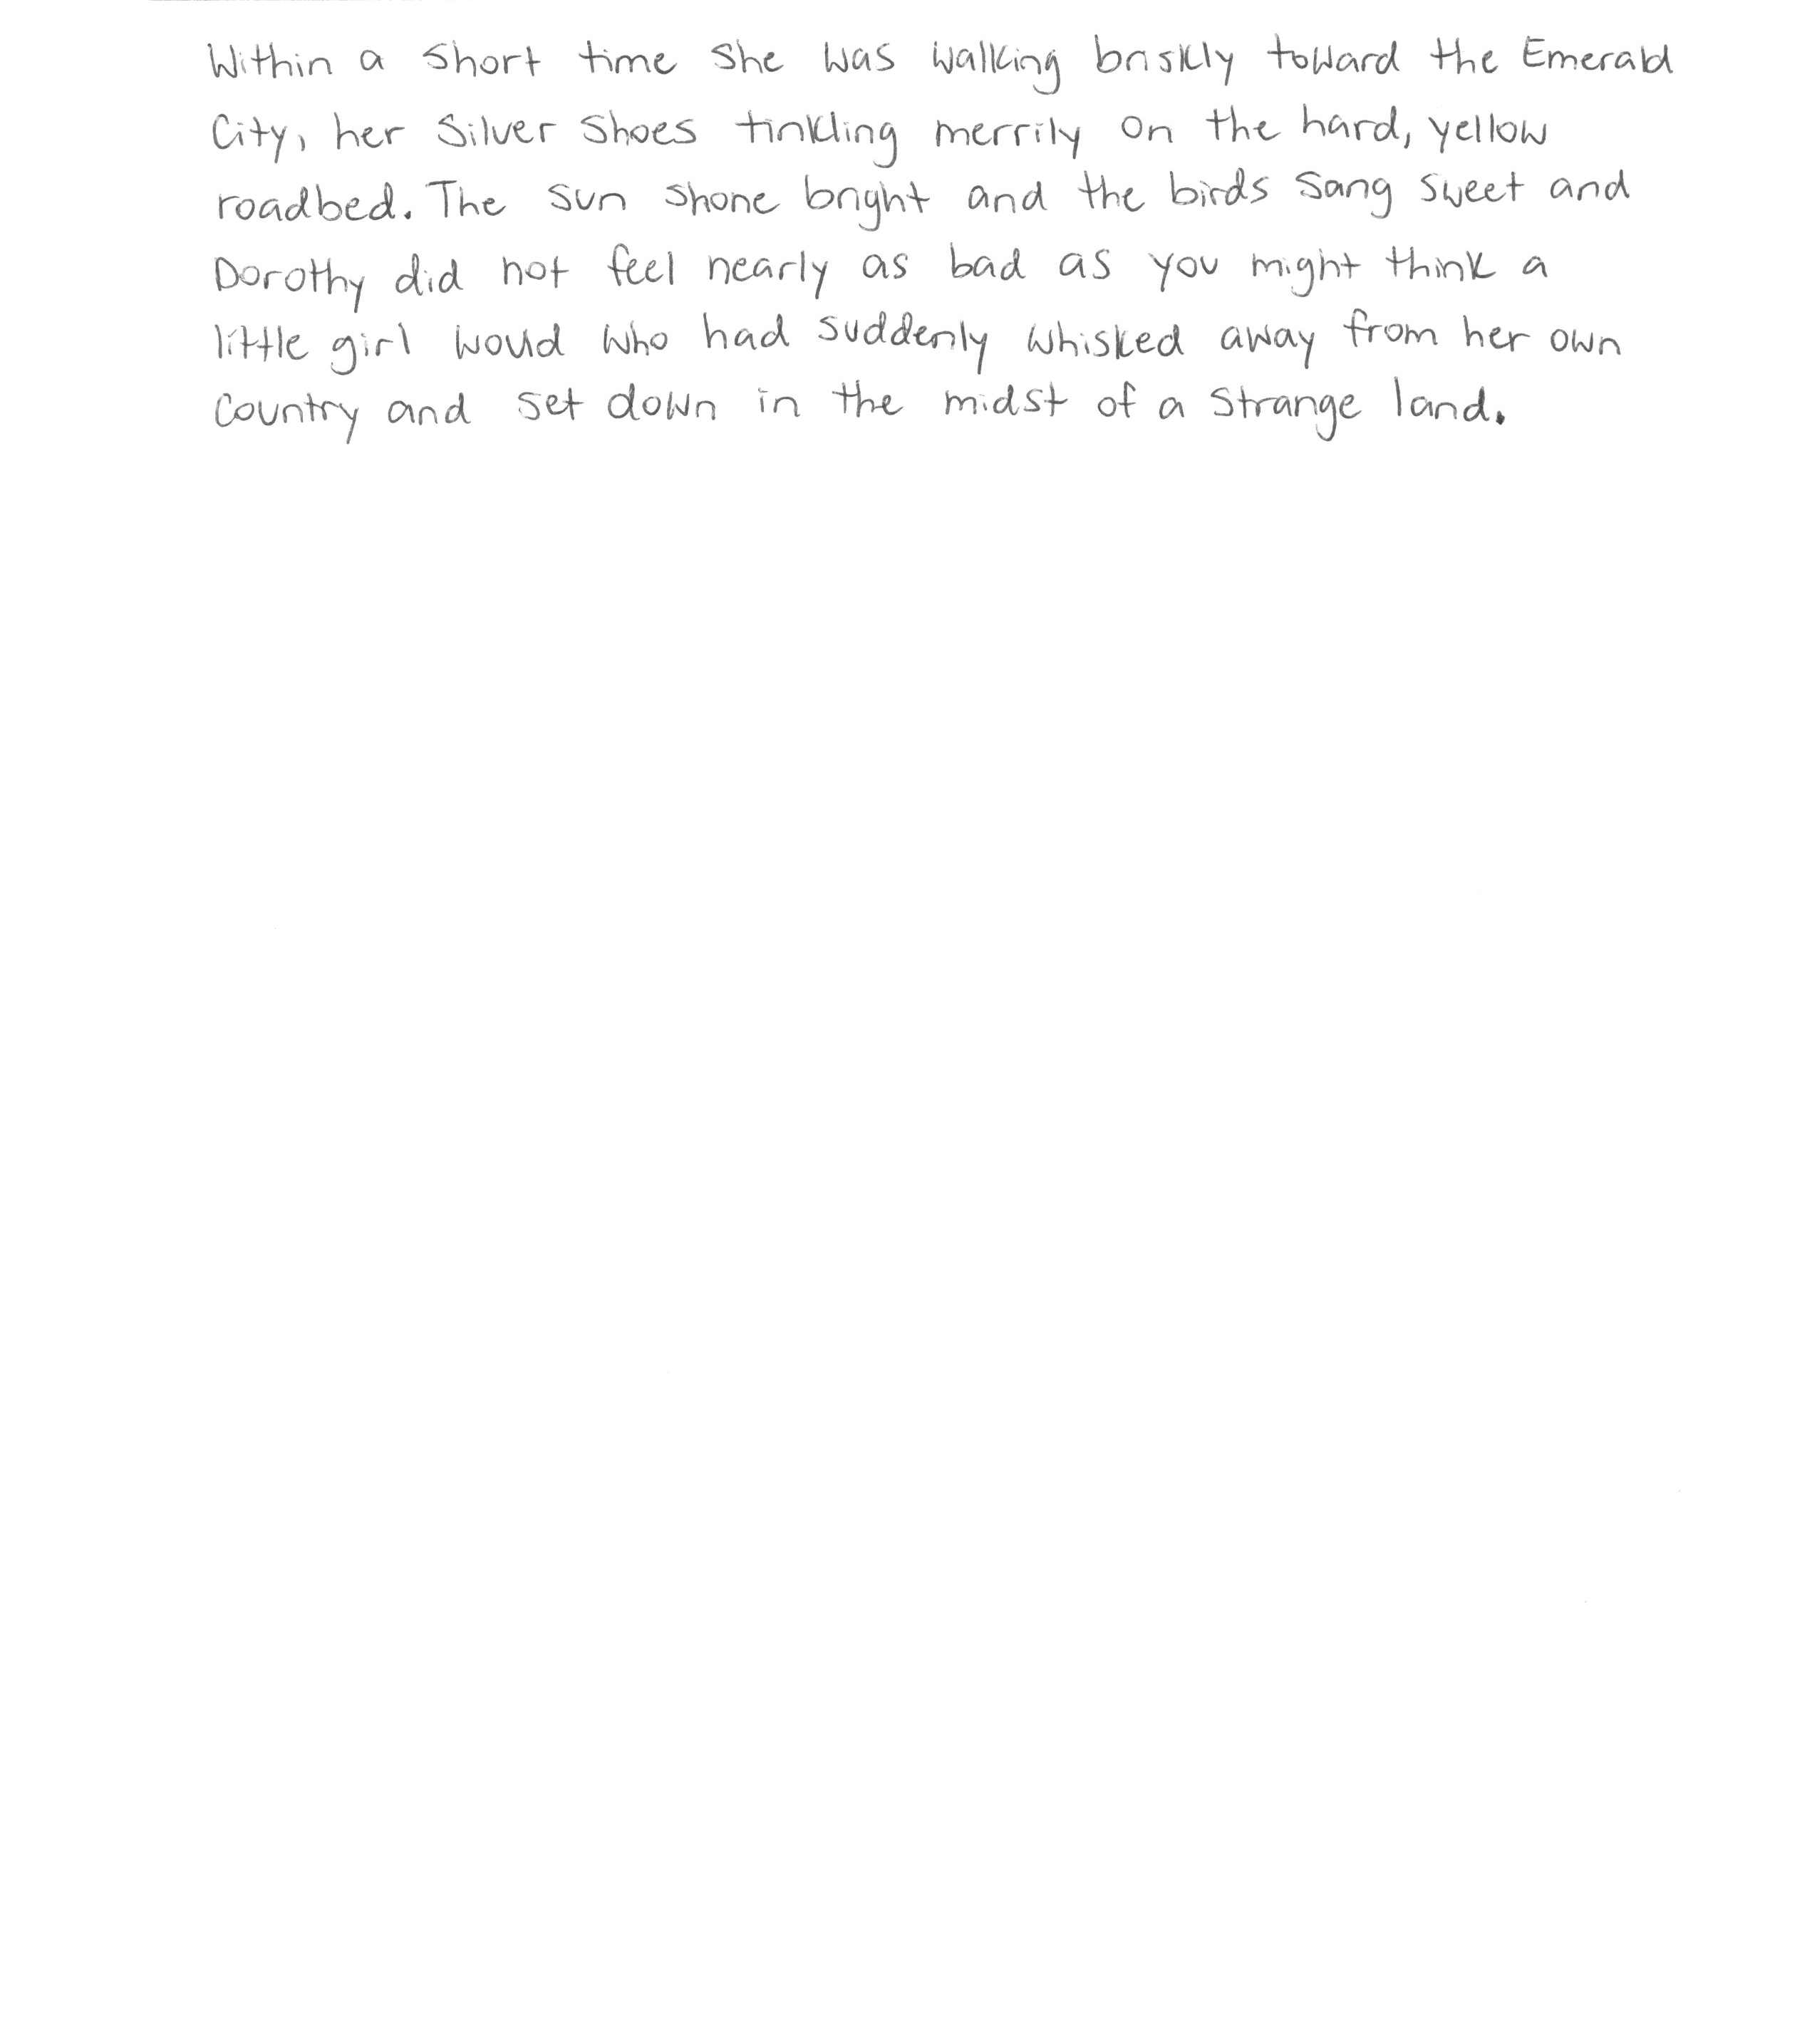 Within a short time she was walking briskly toward the Emerald
City, her Silver Shoes tinkling merrily on the hard, yellow
roadbed. The sun shone bright and the birds sang sweet and
Dorothy did not feel nearly as bad as you might think a
little girl would who had suddenly whisked away from her own
country and set down in the midst of a strange land.